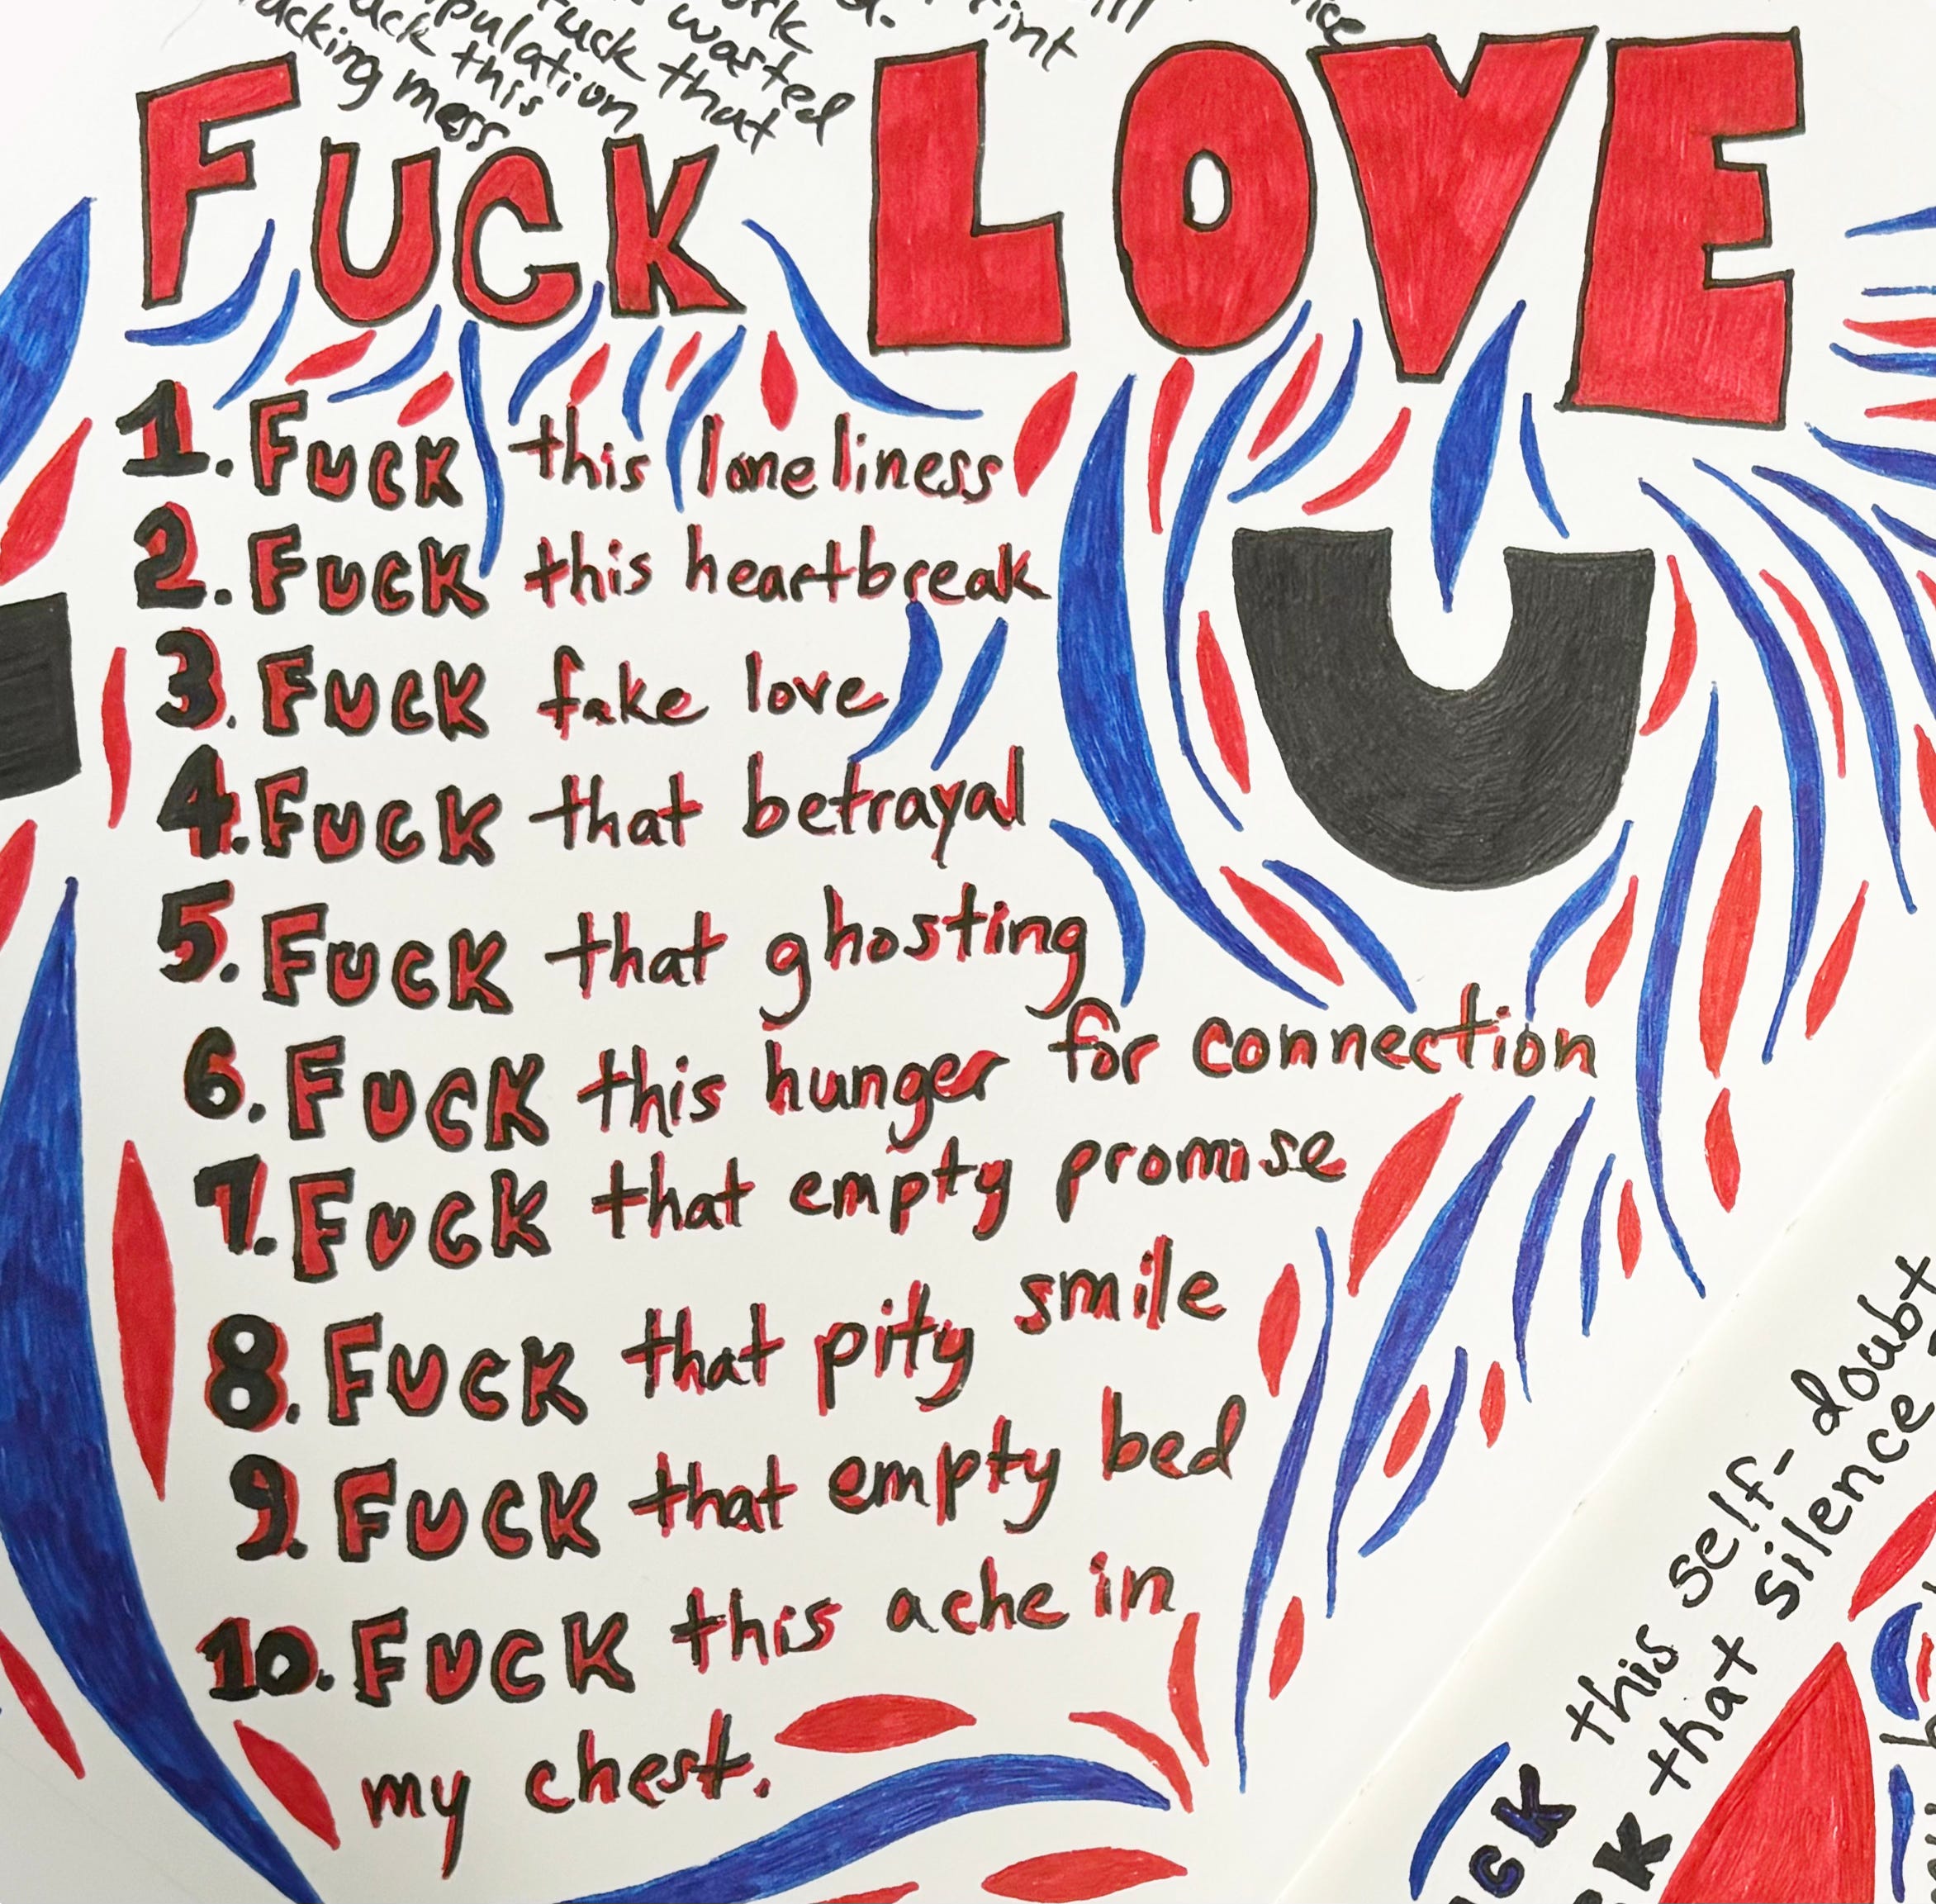 ucking mess
uck this
pulation
fuck that
wasted
FUCK LOVE
1. FUCK this loneliness
2. FUCK this heartbreak
3. FUCK fake love
4. FUCK that betrayal
5. FUCK that ghosting
6. FUCK this hunger for connection
7. FUCK that empty promise
8. FUCK that pity smile
9. FUCK that empty bed
10. FUCK this ache in
my chest.
U
UCK this self-doubt
CK that silence